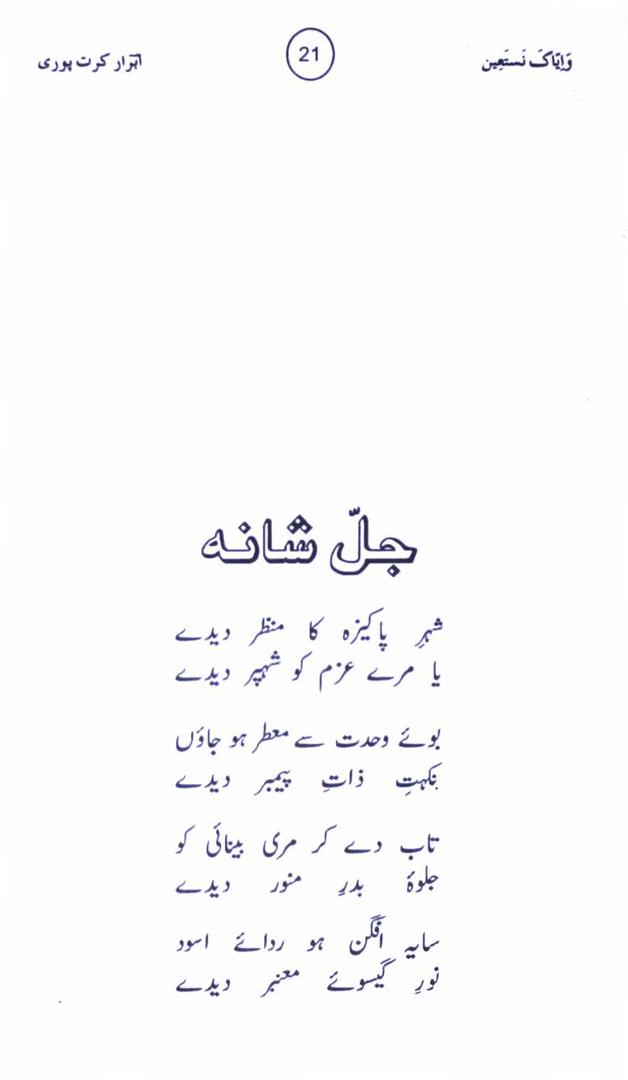 وَاِیّاکَ نَستَعِین
21
ابرار کرت پوری
جلّ شانہ
شہرِ پاکیزہ کا منظر دیدے
یا مرے عزم کو شہپر دیدے
بوئے وحدت سے معطر ہو جاؤں
نکہتِ ذاتِ پیمبر دیدے
تاب دے کر مری بینائی کو
جلوۂ بدرِ منور دیدے
سایہ افگن ہو ردائے اسود
نورِ گیسوئے معنبر دیدے